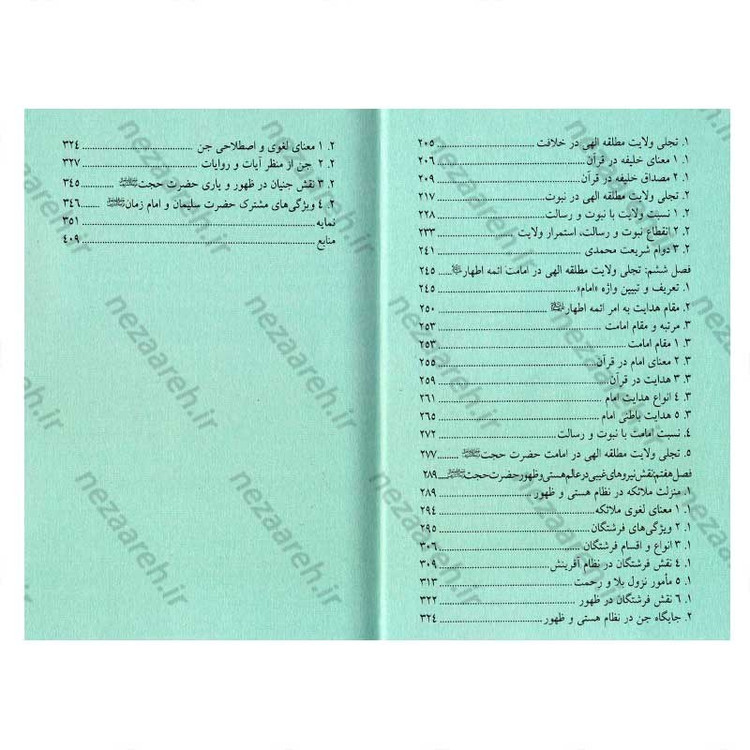 ۱. تجلی ولایت مطلقه الهی در خلافت ۲۰۵
۱. ۱ معنای خلیفه در قرآن ۲۰۶
۱. ۲ مصداق خلیفه در قرآن ۲۰۹
۲. تجلی ولایت مطلقه الهی در نبوت ۲۱۷
۲. ۱ نسبت ولایت با نبوت و رسالت ۲۲۸
۲. ۲ انقطاع نبوت و رسالت، استمرار ولایت ۲۳۳
۲. ۳ دوام شریعت محمدی ۲۴۱
فصل ششم: تجلی ولایت مطلقه الهی در امامت ائمه اطهار ۲۴۵
۱. تعریف و تبیین واژه «امام» ۲۴۵
۲. مقام هدایت به امر ائمه اطهار ۲۵۰
۳. مرتبه و مقام امامت ۲۵۳
۳. ۱ مقام امامت ۲۵۳
۳. ۲ معنای امام در قرآن ۲۵۵
۳. ۳ هدایت در قرآن ۲۵۹
۳. ۴ انواع هدایت امام ۲۶۱
۳. ۵ هدایت باطنی امام ۲۶۵
۴. نسبت امامت با نبوت و رسالت ۲۷۲
۵. تجلی ولایت مطلقه الهی در امامت حضرت حجت ۲۷۷
فصل هفتم: نقش نیروهای غیبی در عالم هستی و ظهور حضرت حجت ۲۸۹
۱. منزلت ملائکه در نظام هستی و ظهور ۲۸۹
۱. ۱ معنای لغوی ملائکه ۲۹۴
۱. ۲ ویژگی‌های فرشتگان ۲۹۵
۱. ۳ انواع و اقسام فرشتگان ۳۰۶
۱. ۴ نقش فرشتگان در نظام آفرینش ۳۰۹
۱. ۵ مأمور نزول بلا و رحمت ۳۱۳
۱. ۶ نقش فرشتگان در ظهور ۳۲۲
۲. جایگاه جن در نظام هستی و ظهور ۳۲۴
۲. ۱ معنای لغوی و اصطلاحی جن ۳۲۴
۲. ۲ جن از منظر آیات و روایات ۳۲۷
۲. ۳ نقش جنیان در ظهور و یاری حضرت حجت ۳۴۵
۲. ۴ ویژگی‌های مشترک حضرت سلیمان و امام زمان ۳۴۶
نمایه ۳۵۱
منابع ۴۰۹
nezaareh.ir